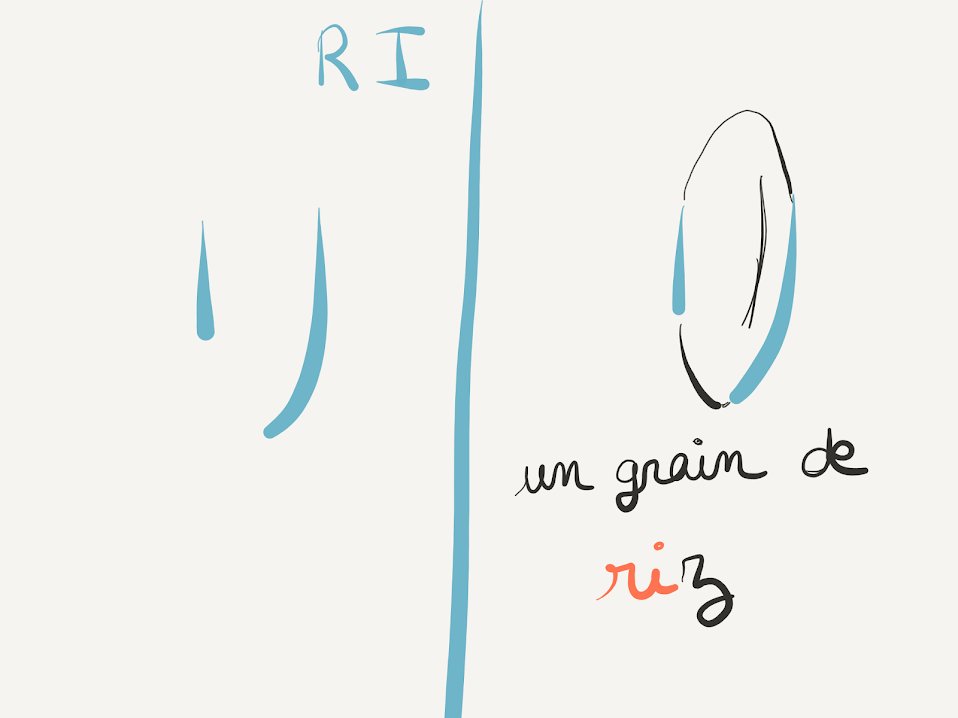 RI
リ
un grain de
riz